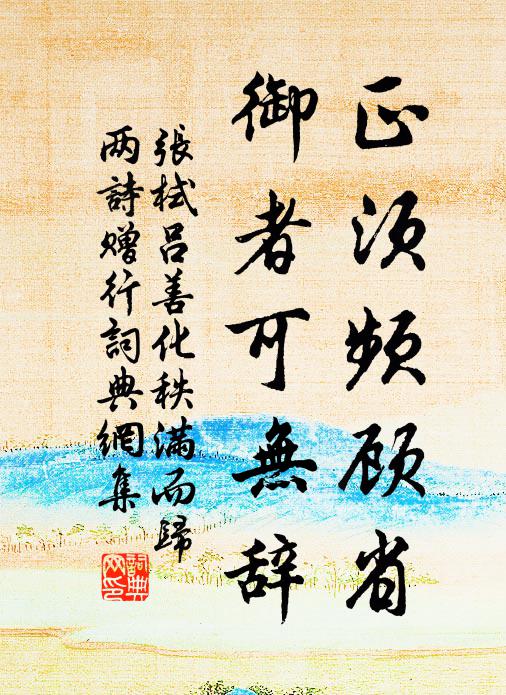 正須頻顧省
御者可無辞
張栻吕善化秩滿而歸
两詩贈行詞典網集
詞典网印